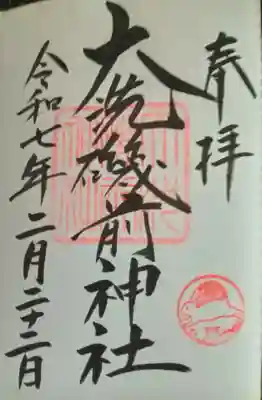 奉拝
大洗磯前神社
令和七年二月二十二日